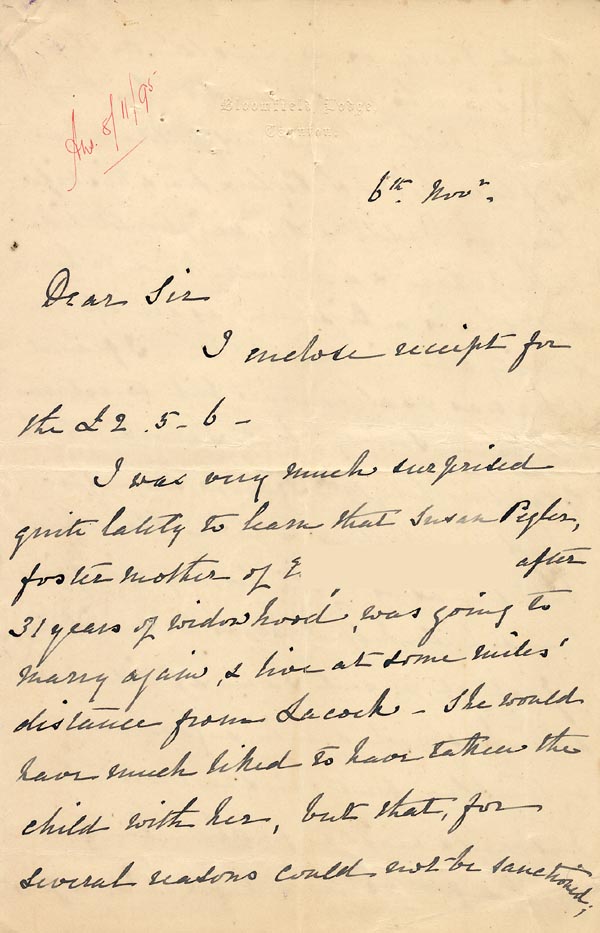 Ans. 8/11/95
Bloomfield Lodge,
Taunton.
6th. Novr.
Dear Sir
I enclose receipt for
the £2.5-6-
I was very much surprised
quite lately to learn that Susan Pegler,
foster mother of E after
31 years of widowhood, was going to
marry again, & live at some miles'
distance from Lacock - She would
have much liked to have taken the
child with her, but that, for
several reasons could not be sanctioned;